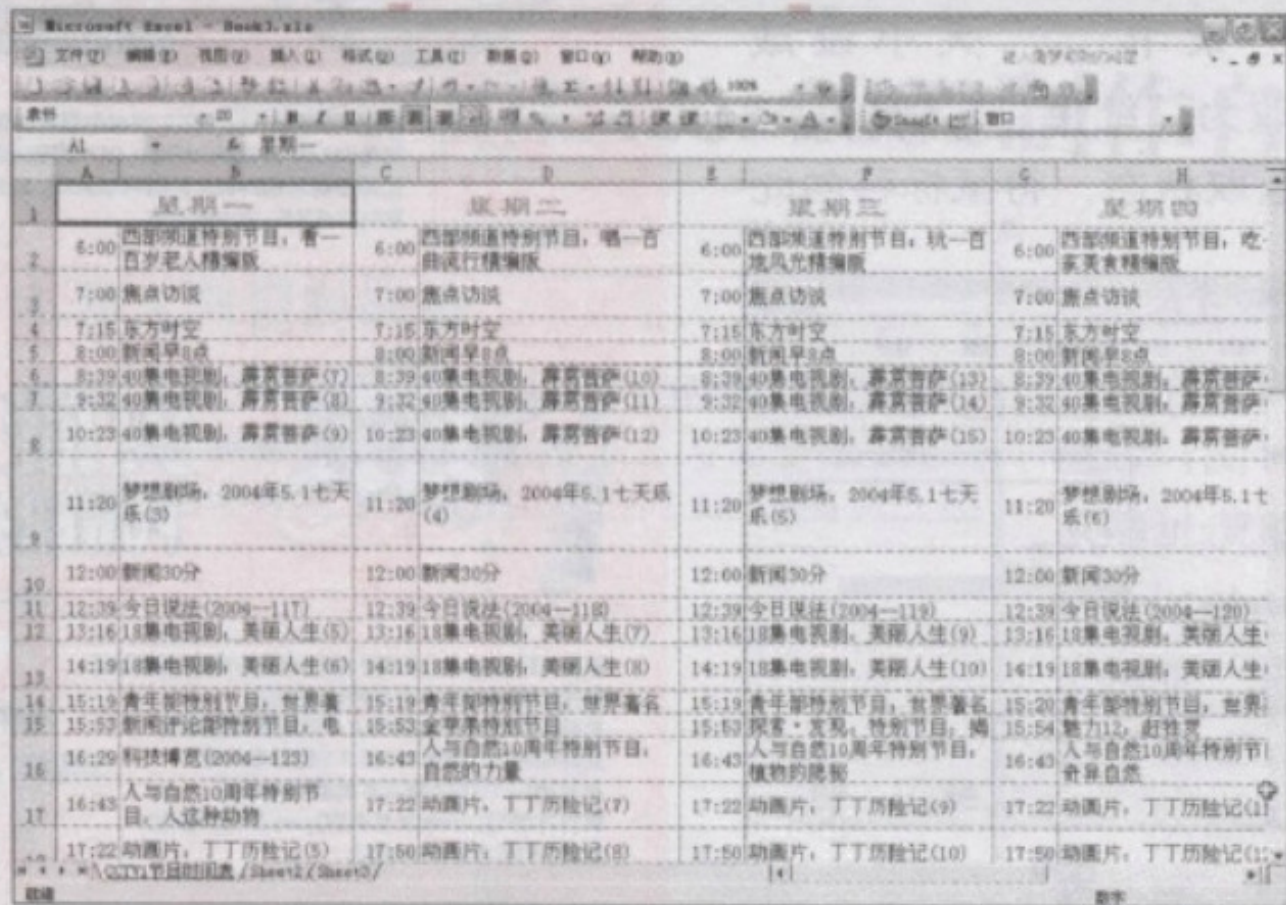 Microsoft Excel - Book3.xls
文件(F) 编辑(E) 视图(V) 插入(I) 格式(O) 工具(T) 数据(D) 窗口(W) 帮助(H)
100%
宋体 20 B I U 窗口
A1 星期一
A B C D E F G H
1 星期一 星期二 星期三 星期四
2 6:00 西部频道特别节目，看一百岁老人精编版 6:00 西部频道特别节目，唱一百曲流行精编版 6:00 西部频道特别节目，玩一百地风光精编版 6:00 西部频道特别节目，吃一家美食精编版
3 7:00 焦点访谈 7:00 焦点访谈 7:00 焦点访谈 7:00 焦点访谈
4 7:15 东方时空 7:15 东方时空 7:15 东方时空 7:15 东方时空
5 8:00 新闻早8点 8:00 新闻早8点 8:00 新闻早8点 8:00 新闻早8点
6 8:39 40集电视剧，霹雳菩萨(7) 8:39 40集电视剧，霹雳菩萨(10) 8:39 40集电视剧，霹雳菩萨(13) 8:39 40集电视剧，霹雳菩萨
7 9:32 40集电视剧，霹雳菩萨(8) 9:32 40集电视剧，霹雳菩萨(11) 9:32 40集电视剧，霹雳菩萨(14) 9:32 40集电视剧，霹雳菩萨
8 10:23 40集电视剧，霹雳菩萨(9) 10:23 40集电视剧，霹雳菩萨(12) 10:23 40集电视剧，霹雳菩萨(15) 10:23 40集电视剧，霹雳菩萨
9 11:20 梦想剧场，2004年5.1七天乐(3) 11:20 梦想剧场，2004年5.1七天乐(4) 11:20 梦想剧场，2004年5.1七天乐(5) 11:20 梦想剧场，2004年5.1七乐(6)
10 12:00 新闻30分 12:00 新闻30分 12:00 新闻30分 12:00 新闻30分
11 12:39 今日说法(2004--117) 12:39 今日说法(2004--118) 12:39 今日说法(2004--119) 12:39 今日说法(2004--120)
12 13:16 18集电视剧，美丽人生(5) 13:16 18集电视剧，美丽人生(7) 13:16 18集电视剧，美丽人生(9) 13:16 18集电视剧，美丽人生
13 14:19 18集电视剧，美丽人生(6) 14:19 18集电视剧，美丽人生(8) 14:19 18集电视剧，美丽人生(10) 14:19 18集电视剧，美丽人生
14 15:19 青年部特别节目，世界著 15:19 青年部特别节目，世界著名 15:19 青年部特别节目，世界著名 15:20 青年部特别节目，世界
15 15:53 新闻评论部特别节目，电 15:53 金苹果特别节目 15:53 探索·发现，特别节目，揭 15:54 魅力12，赶牲灵
16 16:29 科技博览(2004--123) 16:43 人与自然10周年特别节目，自然的力量 16:43 人与自然10周年特别节目，植物的隐秘 16:43 人与自然10周年特别节 奇异自然
17 16:43 人与自然10周年特别节目，人这种动物 17:22 动画片，丁丁历险记(7) 17:22 动画片，丁丁历险记(9) 17:22 动画片，丁丁历险记(1
17:22 动画片，丁丁历险记(5) 17:50 动画片，丁丁历险记(8) 17:50 动画片，丁丁历险记(10) 17:50 动画片，丁丁历险记(1
CCTV1节目时间表 / Sheet2 / Sheet3 /
就绪 数字